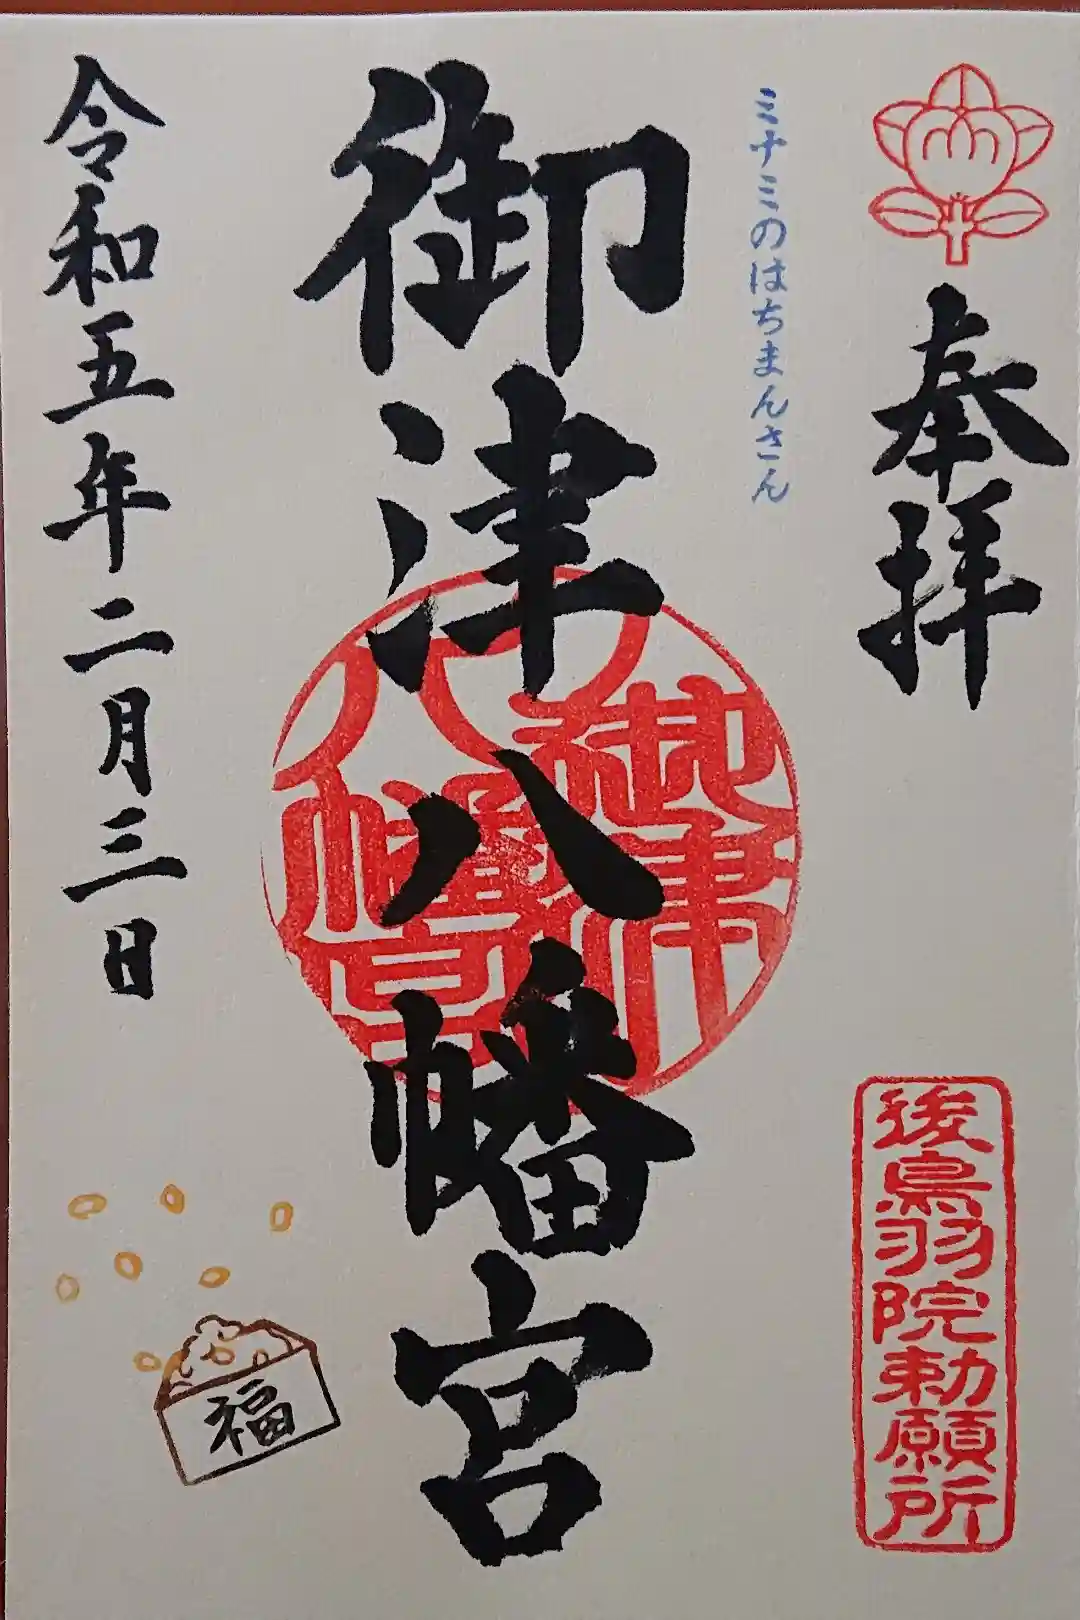 奉拝
後鳥羽院勅願所
ミナミのはちまんさん
御津八幡宮
御津八幡宮
令和五年二月三日
福